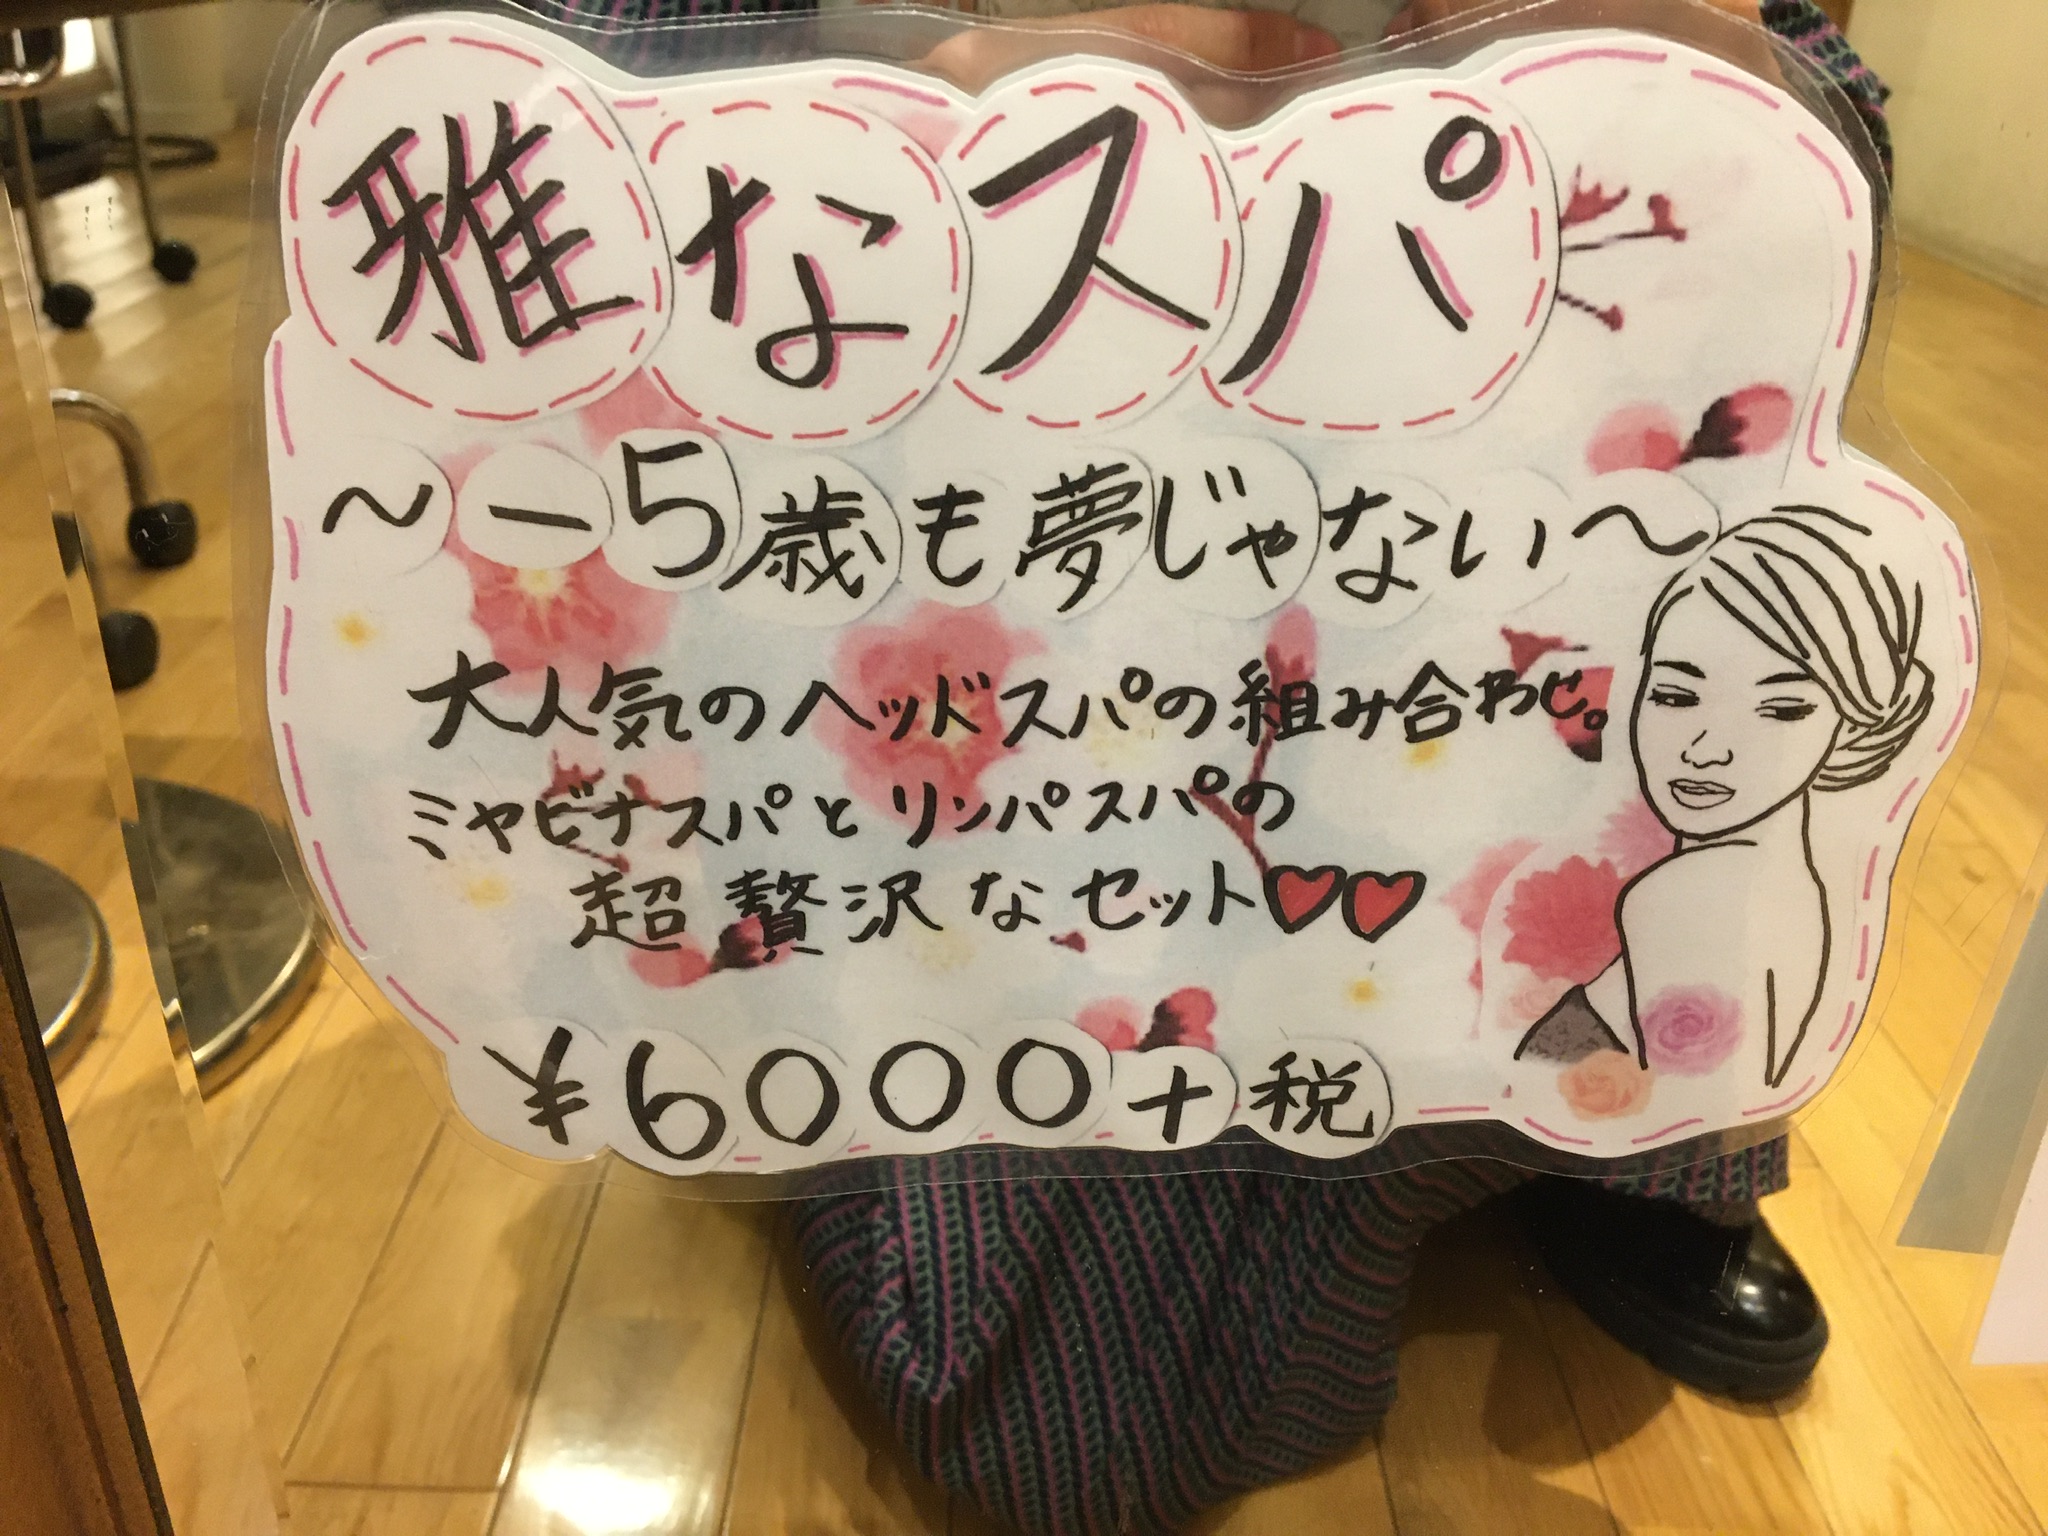 雅なスパ
〜−5歳も夢じゃない〜
大人気のヘッドスパの組み合わせ。
ミヤビナスパとリンパスパの
超贅沢なセット♥♥
¥6000+税